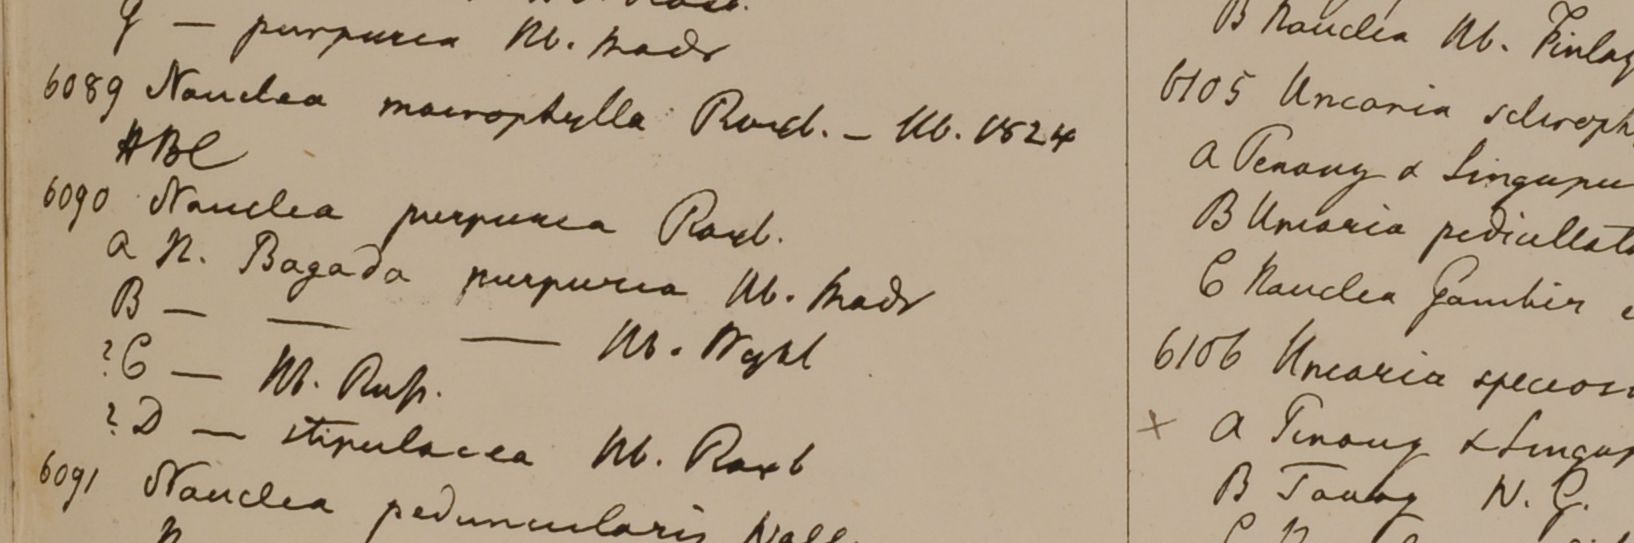 G — purpurea Hb. Madr
6089 Nauclea macrophylla Roxb. — Hb. 1824
HBC
6090 Nauclea purpurea Roxb.
a N. Bagada purpurea Hb. Madr
B — — — Hb. Wight
?C — Hb. Russ.
?D — stipulacea Hb. Roxb
6091 Nauclea peduncularis Wall.
B Nauclea Hb. Finlay
6105 Uncaria scleroph
a Penang & Singapu
B Uncaria pedicellata
C Nauclea Gambir
6106 Uncaria specios
× a Penang & Singap
B Tavoy W. G.